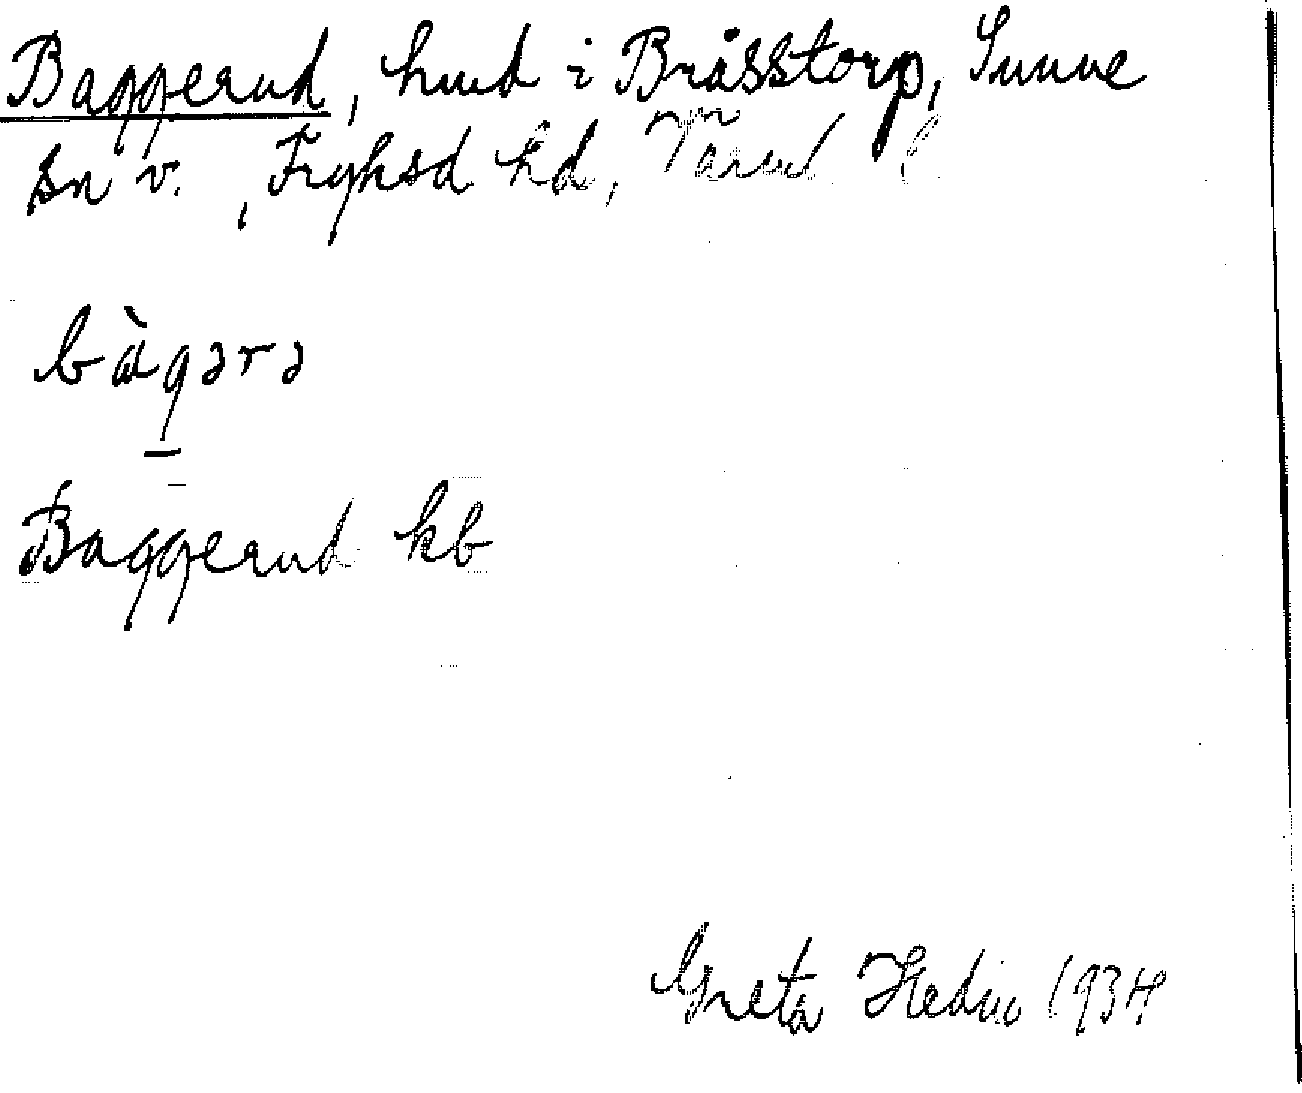 Baggerud, hmd i Bråsstorp, Sunne
sn v., Fryksd hd, Värml l.
bàgərə
Baggerud kb
Greta Hedin 1934